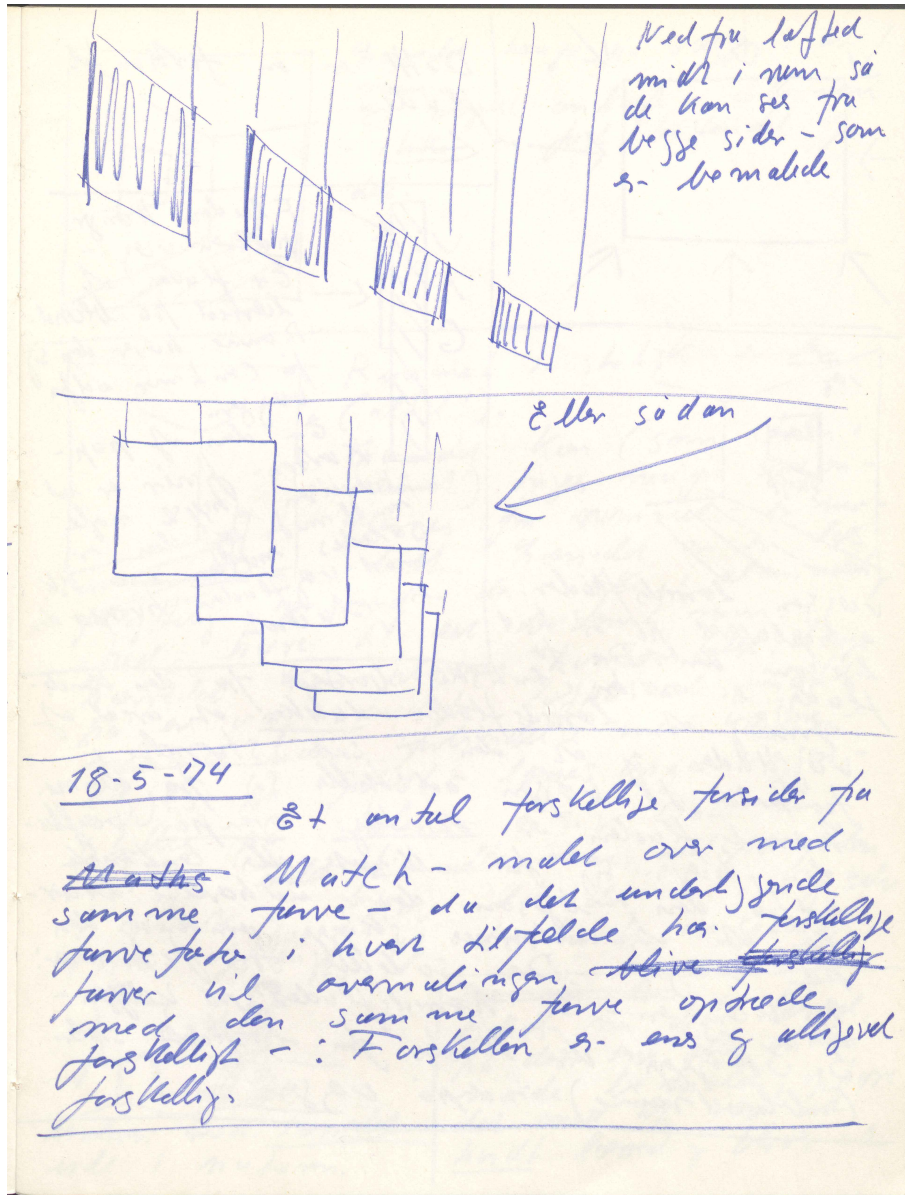 Ned fra lofted
midt i rum, så
de kan ses fra
begge sider – som
er bemalede
Eller sådan
18-5-'74
Et antal forskellige forsider fra
Maths Match – malet over med
samme farve – da det underliggende
farvefoto i hvert tilfælde har forskellige
farver vil overmalingen blive forskellig
med den samme farve optræde
forskelligt – : Forskellen er ens og alligevel
forskellig.